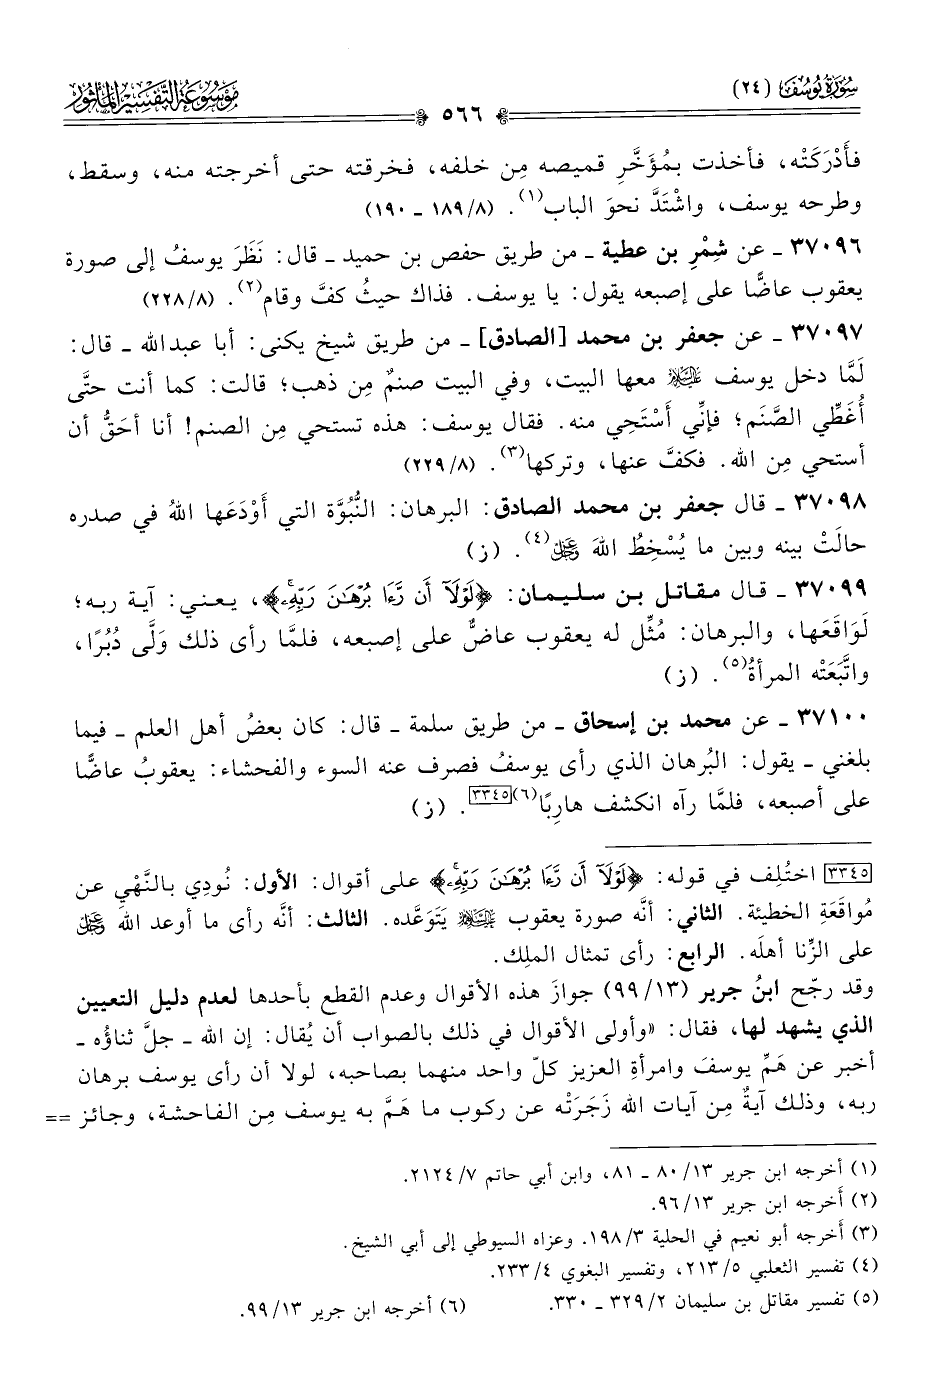 سُورَةُ يُوسُفَ (٢٤)
٥٦٦
مَوْسُوعَةُ التَّفْسِيرِ المَأْثُور
فأَدْرَكَتْه، فأخذت بمُؤَخَّرِ قميصه مِن خلفه، فخرقته حتى أخرجته منه، وسقط،
وطرحه يوسف، واشْتَدَّ نحوَ الباب(١). (١٨٩/٨ ـ ١٩٠)
٣٧٠٩٦ ـ عن شِمْرِ بن عطية ـ من طريق حفص بن حميد ـ قال: نَظَرَ يوسفُ إلى صورة
يعقوب عاضًّا على إصبعه يقول: يا يوسف. فذاك حيثُ كفَّ وقام(٢). (٢٢٨/٨)
٣٧٠٩٧ ـ عن جعفر بن محمد [الصادق] ـ من طريق شيخ يكنى: أبا عبدالله ـ قال:
لَمَّا دخل يوسف عليه السلام معها البيت، وفي البيت صنمٌ مِن ذهب؛ قالت: كما أنت حتَّى
أُغَطِّي الصَّنَم؛ فإنِّي أَسْتَحِي منه. فقال يوسف: هذه تستحي مِن الصنم! أنا أحَقُّ أن
أستحي مِن الله. فكفَّ عنها، وتركها(٣). (٢٢٩/٨)
٣٧٠٩٨ ـ قال جعفر بن محمد الصادق: البرهان: النُّبُوَّة التي أَوْدَعَها اللهُ في صدره
حالَتْ بينه وبين ما يُسْخِطُ اللهَ عز وجل(٤). (ز)
٣٧٠٩٩ ـ قال مقاتل بن سليمان: ﴿لَوْلَآ أَن رَّءَا بُرْهَٰنَ رَبِّهِۦۚ﴾، يعني: آية ربه؛
لَوَاقَعَها، والبرهان: مُثِّل له يعقوب عاضٌّ على إصبعه، فلمَّا رأى ذلك وَلَّى دُبُرًا،
واتَّبَعَتْه المرأةُ(٥). (ز)
٣٧١٠٠ ـ عن محمد بن إسحاق ـ من طريق سلمة ـ قال: كان بعضُ أهل العلم ـ فيما
بلغني ـ يقول: البُرهان الذي رأى يوسفُ فصرف عنه السوء والفحشاء: يعقوبُ عاضًّا
على أصبعه، فلمَّا رآه انكشف هارِبًا(٦)[٣٣٤٥]. (ز)
[٣٣٤٥] اختُلِف في قوله: ﴿لَوْلَآ أَن رَّءَا بُرْهَٰنَ رَبِّهِۦۚ﴾ على أقوال: الأول: نُودِي بالنَّهْيِ عن
مُواقَعَةِ الخطيئة. الثاني: أنَّه صورة يعقوب عليه السلام يَتَوَعَّده. الثالث: أنَّه رأى ما أوعد الله عز وجل
على الزِّنا أهلَه. الرابع: رأى تمثال الملِك.
وقد رجّح ابنُ جرير (٩٩/١٣) جوازَ هذه الأقوال وعدم القطع بأحدها لعدم دليل التعيين
الذي يشهد لها، فقال: «وأولى الأقوال في ذلك بالصواب أن يُقال: إن الله ـ جلَّ ثناؤه ـ
أخبر عن هَمِّ يوسفَ وامرأةِ العزيز كلّ واحد منهما بصاحبه، لولا أن رأى يوسف برهان
ربه، وذلك آيةٌ مِن آيات الله زَجَرَتْه عن ركوب ما هَمَّ به يوسف مِن الفاحشة، وجائز ==
(١) أخرجه ابن جرير ٨٠/١٣ ـ ٨١، وابن أبي حاتم ٢١٢٤/٧.
(٢) أخرجه ابن جرير ٩٦/١٣.
(٣) أخرجه أبو نعيم في الحلية ١٩٨/٣. وعزاه السيوطي إلى أبي الشيخ.
(٤) تفسير الثعلبي ٢١٣/٥، وتفسير البغوي ٢٣٣/٤.
(٥) تفسير مقاتل بن سليمان ٣٢٩/٢ ـ ٣٣٠. (٦) أخرجه ابن جرير ٩٩/١٣.